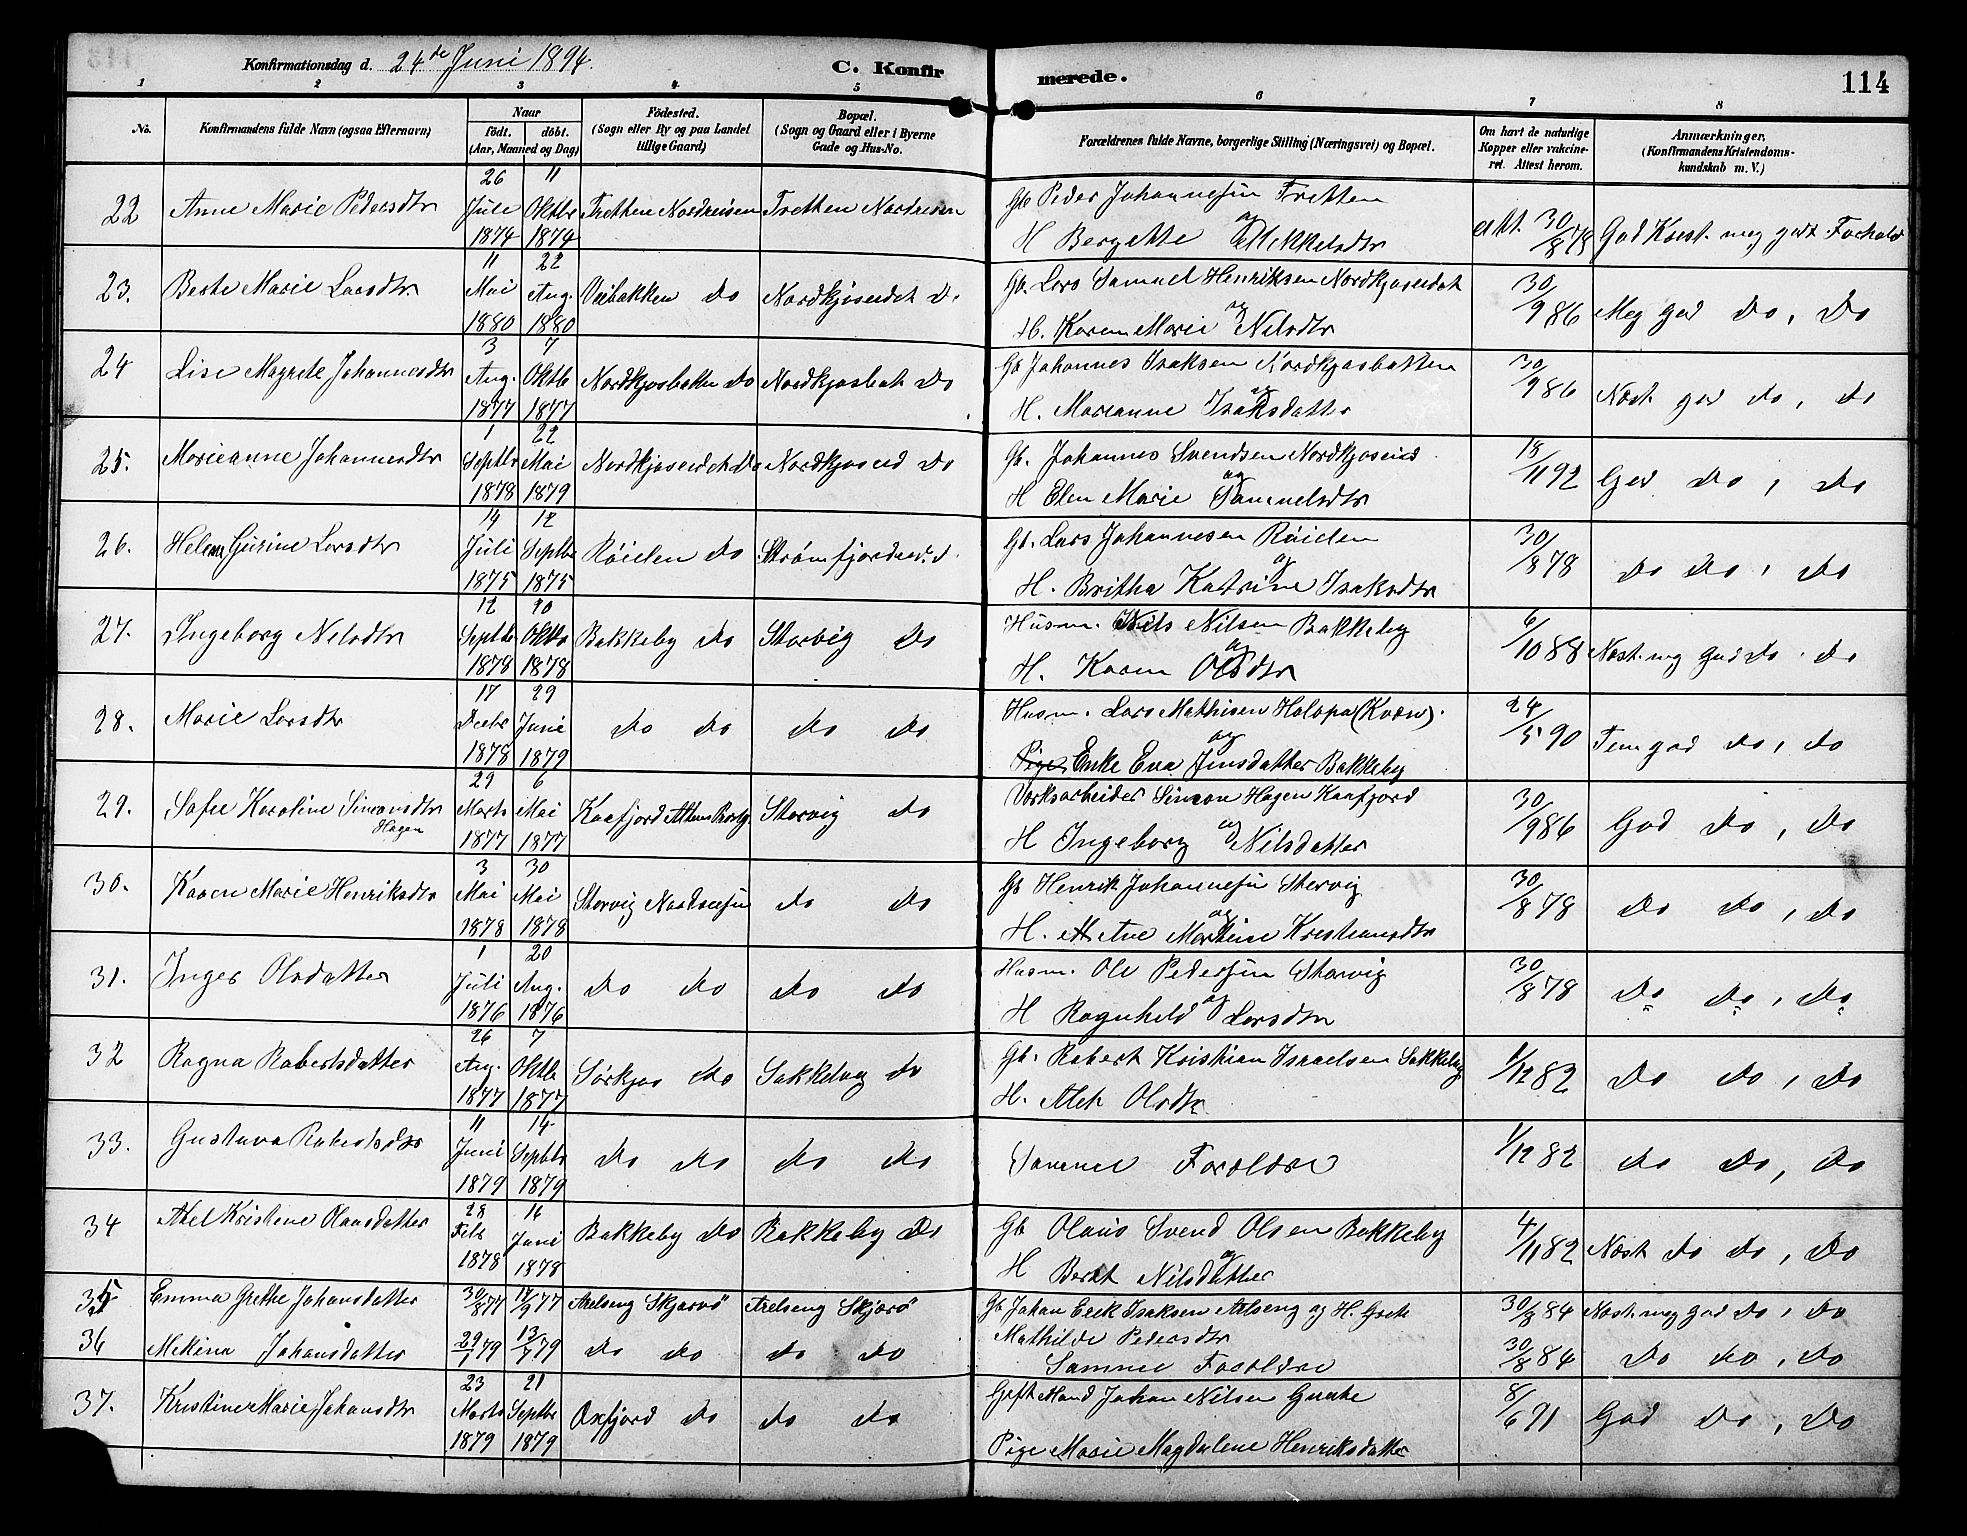 Konfirmationsdag d. 24de Juni 1894.
C. Konfirmerede.
114
1 2 3 4 5 6 7 8
No.
Konfirmandens fulde Navn (ogsaa Efternavn)
Naar
født. døbt.
(Aar, Maaned og Dag)
Fødested.
(Sogn eller By og paa Landet
tillige Gaard)
Bopæl.
(Sogn og Gaard eller i Byerne
Gade og Hus-No.
Forældrenes fulde Navne, borgerlige Stilling (Næringsvei) og Bopæl.
Om havt de naturlige
Kopper eller vakcine-
ret. Attest herom.
Anmærkninger.
(Konfirmandens Kristendoms-
kundskab m. V.)
22 Anne Marie Pedersdtr 26 Juli 1874 11 Oktbr 1874 Tretten Nordreisen Tretten Nordreisen Gb Peder Johannesen Tretten og
H Bergette Mikkelsdtr att. 30/8 78 God Krist. meg godt Forhold
23. Berte Marie Larsdtr 11 Mai 1880 22 Aug. 1880 Veibakken do Nordkjoseidet do Gb. Lars Samuel Henriksen Nordkjoseidet og
H. Karen Marie Nilsdtr 30/9 86 Meg god do, do
24 Lise Magrete Johannesdtr 3 Aug. 1877 7 Oktb 1877 Nordkjosbotten do Nordkjosbot do Gb Johannes Isaksen Nordkjosbotten og
H. Marianne Isaksdatter 30/9 86 Næst. god do, do
25. Marieanne Johannesdtr 1 Septbr 1878 22 Mai 1879 Nordkjoseidet do Nordkjoseid do Gb. Johannes Svendsen Nordkjoseid og
H Elen Marie Samuelsdtr 18/11 92 God do, do
26. Helene Gurine Larsdtr 14 Juli 1875 12 Septbr 1875 Röielen do Strømfjordnes. d. Gb. Lars Johannesen Röielen og
H. Britha Katrine Isaksdtr 30/8 78 do do, do
27. Ingeborg Nilsdtr 12 Septbr 1878 20 Oktbr 1878 Bakkeby do Storvig do Husm. Nils Nilsen Bakkeby og
H. Karen Olsdtr 6/10 88 Næst. meg God do. do
28. Marie Larsdtr 17 Decbr 1878 29 Juni 1879 do do do do Husm. Lars Mathisen Halopa (Kvæn). og
Pige Enke Eva Jensdatter Bakkeby 24/5 90 Tem. god do, do
29. Sofie Karoline Simonsdtr Hagen 29 Marts 1877 6 Mai 1877 Kaafjord Altens Prestg. Storvig do Værksarbeider Simon Hagen Kaafjord og
H Ingeborg Nilsdatter 30/9 86 God do, do
30. Karen Marie Henriksdtr 3 Mai 1878 30 Mai 1878 Storvig Nordreisen do do Gb Henrik Johannesen Storvig og
H. Ane Martine Kristiansdtr 30/8 78 do do, do
31. Inger Olsdatter 1 Juli 1876 20 Aug. 1876 do do do do Husm. Ole Pedersen Storvig og
H Ragnhild Larsdtr 30/8 78 do do, do
32 Ragna Robertsdatter 26 Aug. 1877 7 Oktbr 1877 Sörkjos do Sokkelvig do Gb. Robert Kristian Israelsen Sokkelvig
H. Alet Olsdtr 1/12 82 do do, do
33. Gustava Robertsdtr 11 Juni 1879 14 Septbr 1879 do do do do Samme Forældre 1/12 82 do do, do
34 Alet Kristine Olausdatter 28 Feb 1878 16 Juni 1878 Bakkeby do Bakkeby do Gb Olaus Svend Olsen Bakkeby og
H Berit Nilsdatter 4/11 82 Næst do do, do
35 Emma Grethe Johansdatter 30/8 77 17/9 77 Arelseng Skjærvö Arelseng Skjærvö Gb Johan Erik Isaksen Arelseng og H. Grete
Mathilde Pedersdtr 30/8 84 Næst. meg god do, do
36 Mekina Johansdatter 29/1 79 13/7 79 do do do do Samme Forældre 30/8 84 do do, do
37. Kristine Marie Johansdtr 23 Marts 1879 21 Septbr 1879 Oxfjord do do do Gift Mand Johan Nilsen
Pige Marie Magdalene Henriksdatter 8/6 91 God do, do